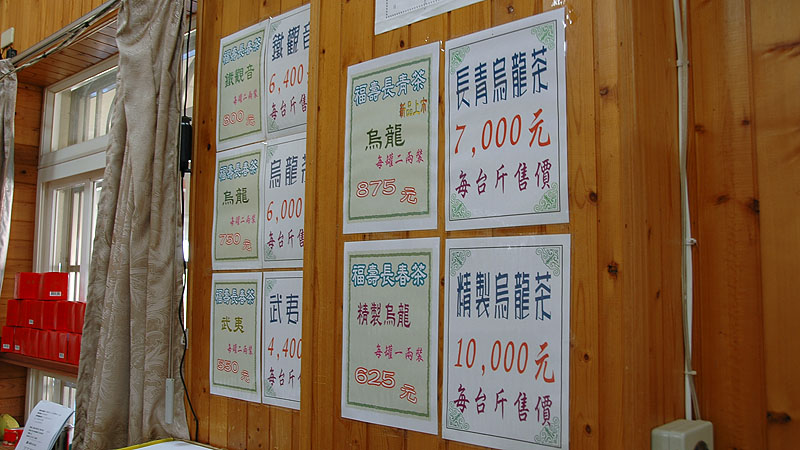 福壽長春茶
鐵觀音
每罐二兩裝
800元
鐵觀音
6,400
每台斤售
福壽長春茶
烏龍
每罐二兩裝
750元
烏龍茶
6,000
每台斤售
福壽長春茶
武夷
每罐二兩裝
550元
武夷
4,400
每台斤
福壽長青茶
新品上市
烏龍
每罐二兩裝
875元
長青烏龍茶
7,000元
每台斤售價
福壽長春茶
精製烏龍
每罐一兩裝
625元
精製烏龍茶
10,000元
每台斤售價